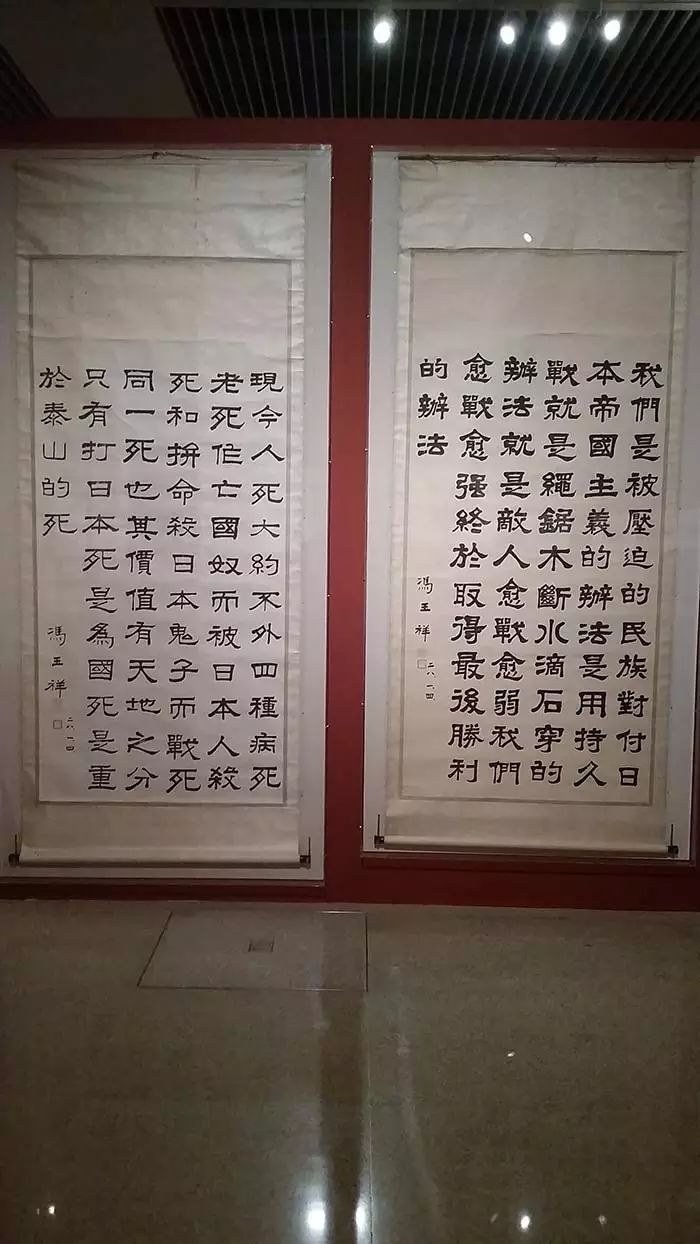 我們是被壓迫的民族對付日
本帝國主義的辦法是用持久
戰就是繩鋸木斷水滴石穿的
辦法就是敵人愈戰愈弱我們
愈戰愈强終於取得最後勝利
的辦法
馮玉祥
二八 一 四
現今人死大約不外四種病死
老死作亡國奴而被日本人殺
死和拼命殺日本鬼子而戰死
同一死也其價值有天地之分
只有打日本死是為國死是重
於泰山的死
馮玉祥